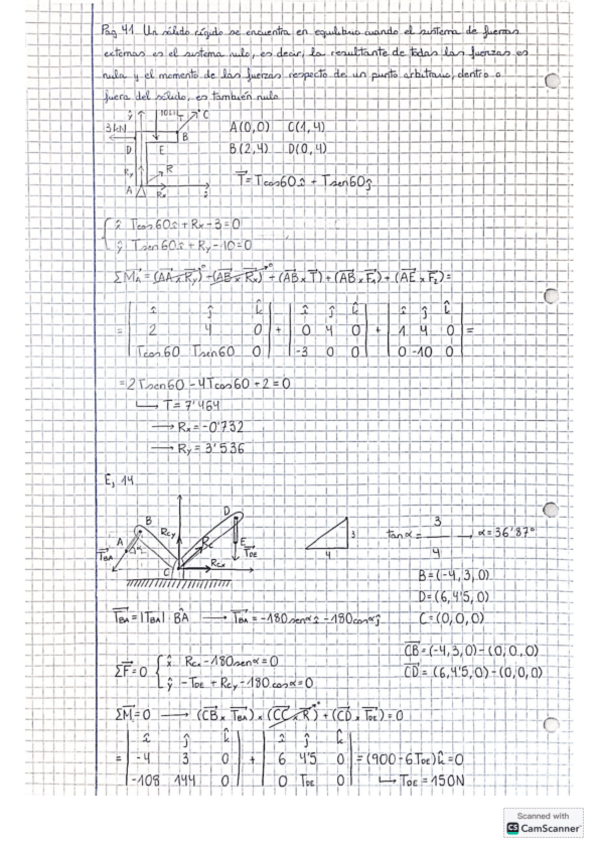 Pag 41. Un sólido rígido se encuentra en equilibrio cuando el sistema de fuerzas
externas es el sistema nulo, es decir, la resultante de todas las fuerzas es
nula y el momento de las fuerzas respecto de un punto arbitrario, dentro o
fuera del sólido, es también nulo.
ŷ 10kN T C
3kN B A(0,0) C(1,4)
D E B(2,4) D(0,4)
Ry R
A Rx x̂ T⃗ = Tcos60î + Tsen60ĵ
x̂ Tcos60î + Rx - 3 = 0
ŷ Tsen60î + Ry - 10 = 0
∑M⃗A = (AA⃗ x R⃗y)⁰ + (AB⃗ x R⃗x)⁰ + (AB⃗ x T⃗) + (AB⃗ x F⃗1) + (AE⃗ x F⃗2) =
î ĵ k̂ î ĵ k̂ î ĵ k̂
= | 2 4 0 | + | 0 4 0 | + | 1 4 0 | =
Tcos60 Tsen60 0 -3 0 0 0 -10 0
= 2Tsen60 - 4Tcos60 + 2 = 0
↳ T = 7'464
→ Rx = -0'732
→ Ry = 3'536
E, 14
B D
A Rcy R E
T⃗BA α T⃗DE
C Rcx
3
4
tanα = 3/4 → α = 36'87º
B = (-4, 3, 0)
D = (6, 4'5, 0)
C = (0, 0, 0)
T⃗BA = |TBA| · BÂ → T⃗BA = -180senαî - 180cosαĵ
CB⃗ = (-4, 3, 0) - (0, 0, 0)
CD⃗ = (6, 4'5, 0) - (0, 0, 0)
∑F⃗ = 0 x̂ Rcx - 180senα = 0
ŷ -TDE + Rcy - 180cosα = 0
∑M⃗ = 0 → (CB⃗ x T⃗BA) + (CC⃗ x R⃗)⁰ + (CD⃗ x T⃗DE) = 0
î ĵ k̂ î ĵ k̂
= | -4 3 0 | + | 6 4'5 0 | = (900 - 6TDE)k̂ = 0
-108 144 0 0 TDE 0 ↳ TDE = 150N
Scanned with
CS CamScanner